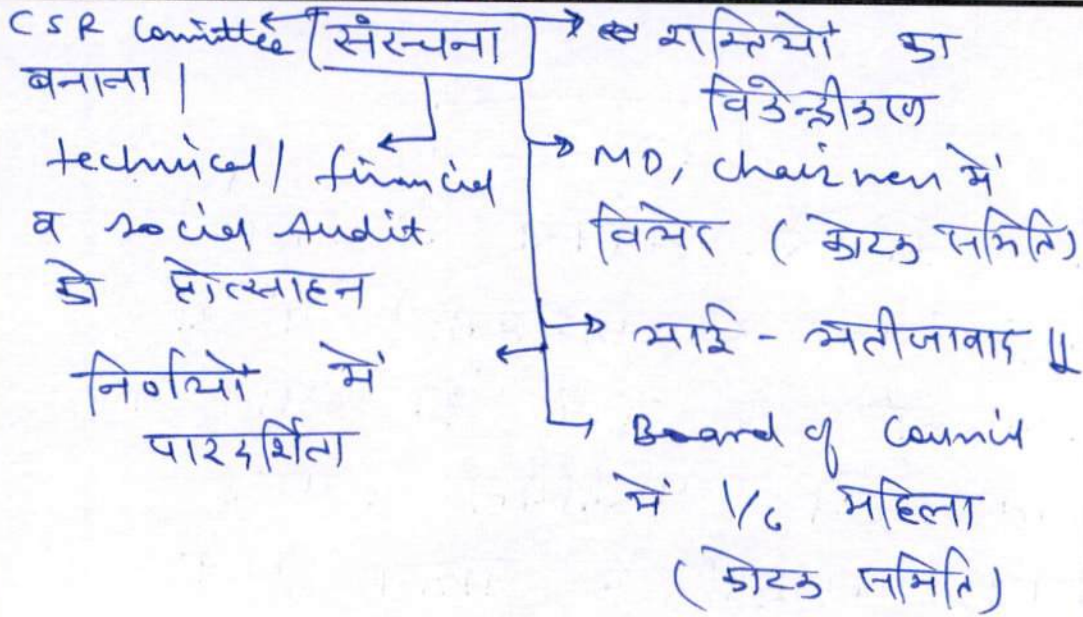 CSR Comittee
बनाना |
technical / financial
व social Audit
को प्रोत्साहन
निर्णयों में
पारदर्शिता
संरचना
शक्तियों का
विकेन्द्रीकरण
MD, chairmen में
विभेद (कोटक समिति)
भाई - भतीजावाद ↓↓
Board of Council
में 1/6 महिला
(कोटक समिति)